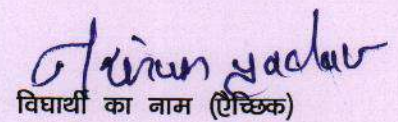 yadav
विघार्थी का नाम (ऐच्छिक)